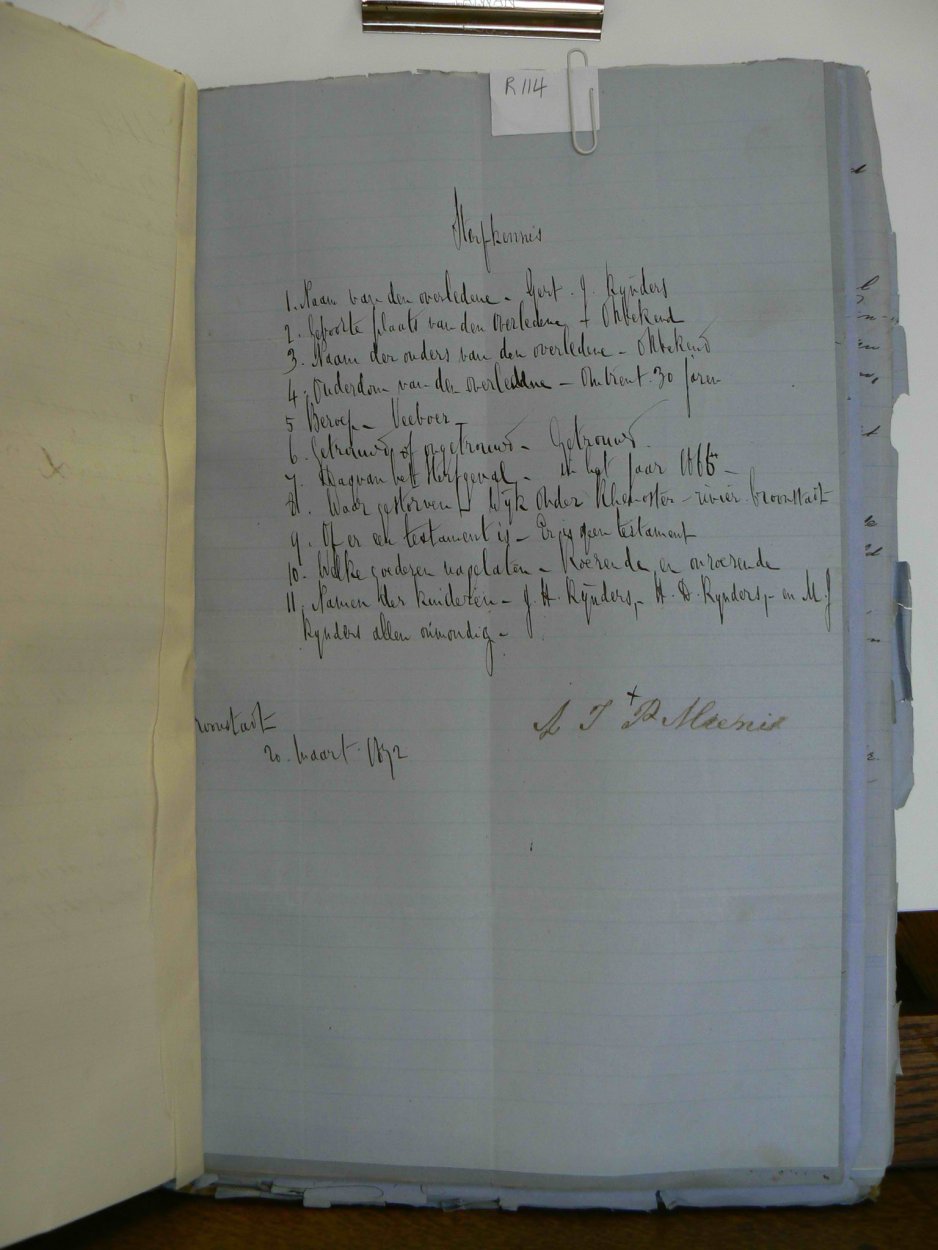 R 114
Sterfkennis
1. Naam van den overledene - Gert. J. Rynders
2. Geboorte plaats van den overledene - Onbekend
3. Naam der ouders van den overledene - Onbekend
4. Ouderdom van den overledene - Omtrent 30 jaren
5 Beroep - Veeboer -
6. Getrouwd of ongetrouwd - Getrouwd -
7. Dag van het sterfgeval - in het jaar 1866 -
8. Waar gestorven - Wyk Onder Rhenoster - rivier Kroonstadt
9. Of er een testament is - Er is geen testament
10. Welke goederen nagelaten - Roerende en onroerende
11. Namen der kinderen - J. H. Rynders, - H. D. Rynders, - en M. J
Rynders allen onmondig -
roonstadt
20. Maart 1872
J P